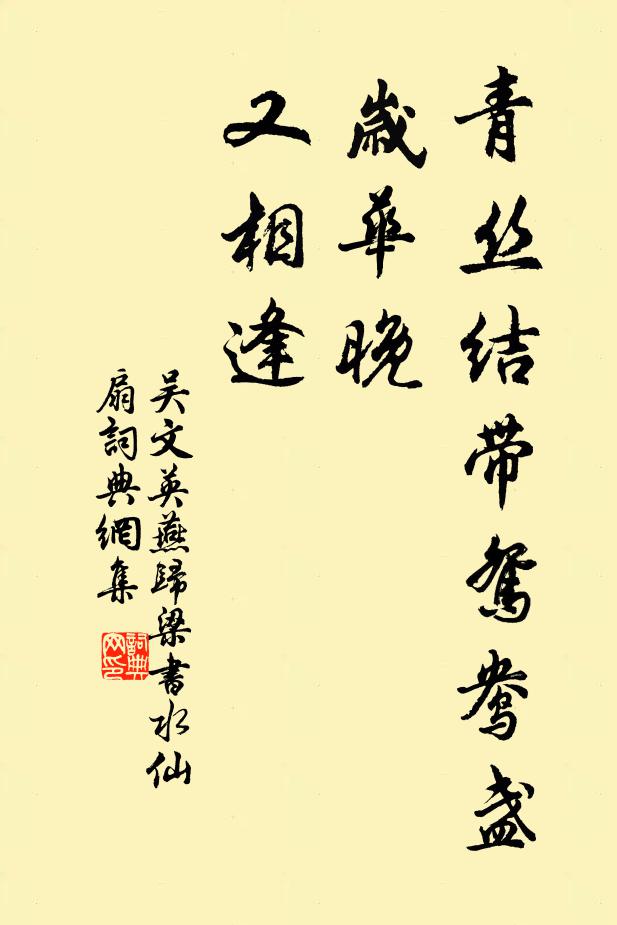 青丝结带鸳鸯盏
歲華晚
又相逢
吴文英燕歸梁書水仙
扇詞典網集
詞典
网印